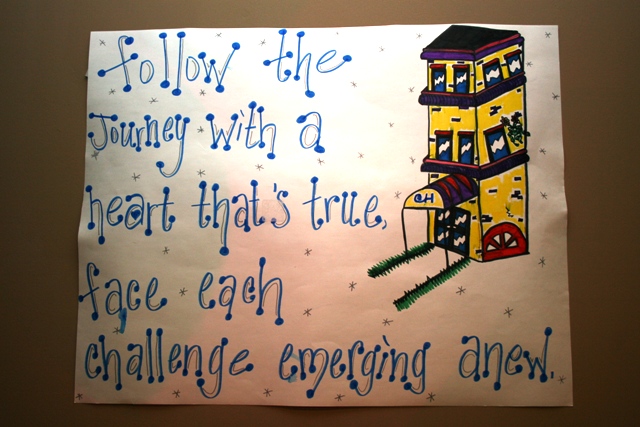 follow the
Journey with a
heart that's true,
face each
challenge emerging anew.
CH